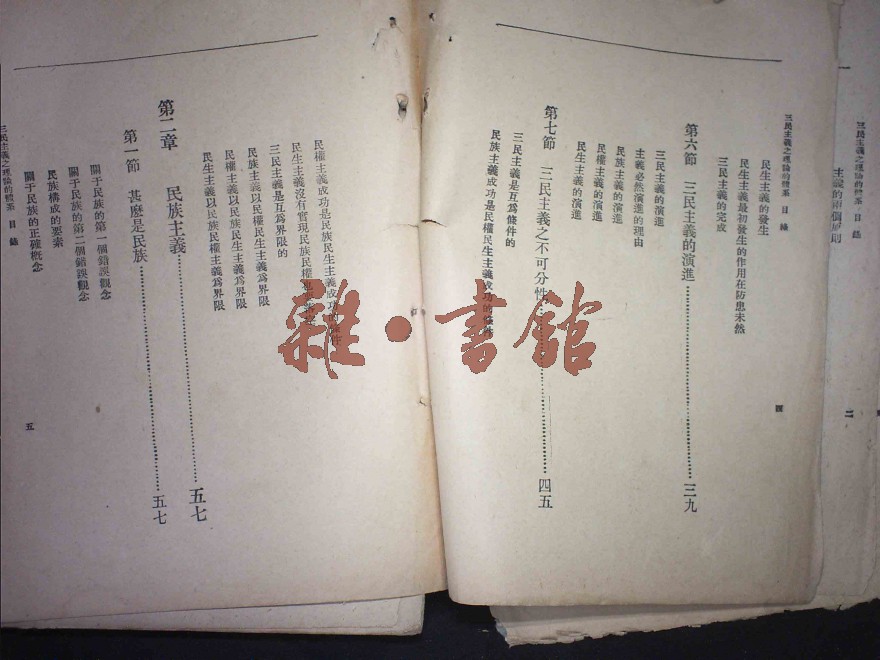 三民主義之理論的體系 目錄
二
主義的兩個原則
三民主義之理論的體系 目錄
四
民生主義的發生
民生主義最初發生的作用在防患未然
三民主義的完成
第六節 三民主義的演進……三九
三民主義的演進
主義必然演進的理由
民族主義的演進
民權主義的演進
民生主義的演進
第七節 三民主義之不可分性……四五
三民主義是互爲條件的
民族主義成功是民權民生主義成功的條件
民權主義成功是民族民生主義成功的條件
民生主義沒有實現民族民權
三民主義是互爲界限的
民族主義以民權民生主義爲界限
民權主義以民族民生主義爲界限
民生主義以民族民權主義爲界限
第二章 民族主義……五七
第一節 甚麼是民族……五七
關于民族的第一個錯誤觀念
關于民族的第二個錯誤觀念
民族構成的要素
關于民族的正確概念
三民主義之理論的體系 目錄
五
雜·書館